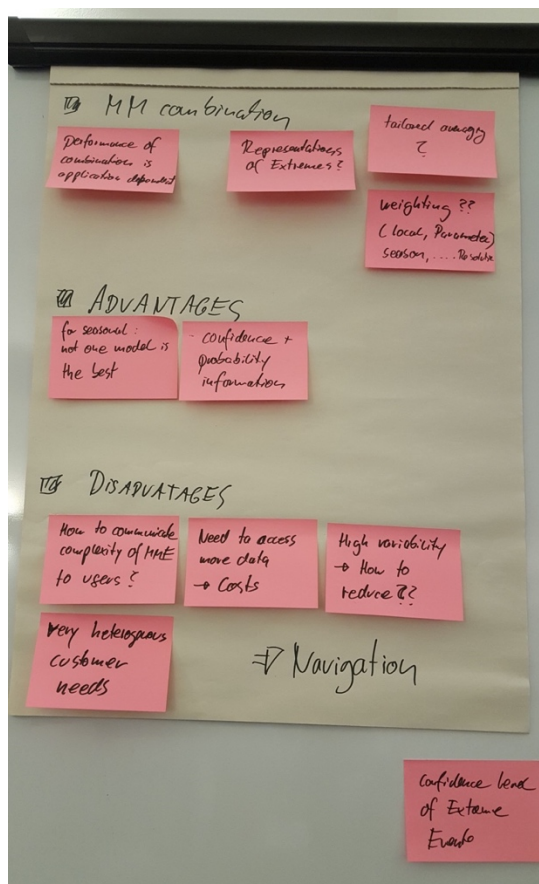 MM combination
Performance of
combination is
application dependent
Representations
of Extremes?
tailored
?
weighting ??
(local, Parameter)
season, ....
ADVANTAGES
for seasonal:
not one model is
the best
- confidence +
probability
information
DISADVATAGES
How to communicate
complexity of MME
to users?
Need to access
more data
→ Costs
High variability
→ How to
reduce ??
very heterogenous
customer
needs
⇒ Navigation
Confidence level
of Extreme
Events